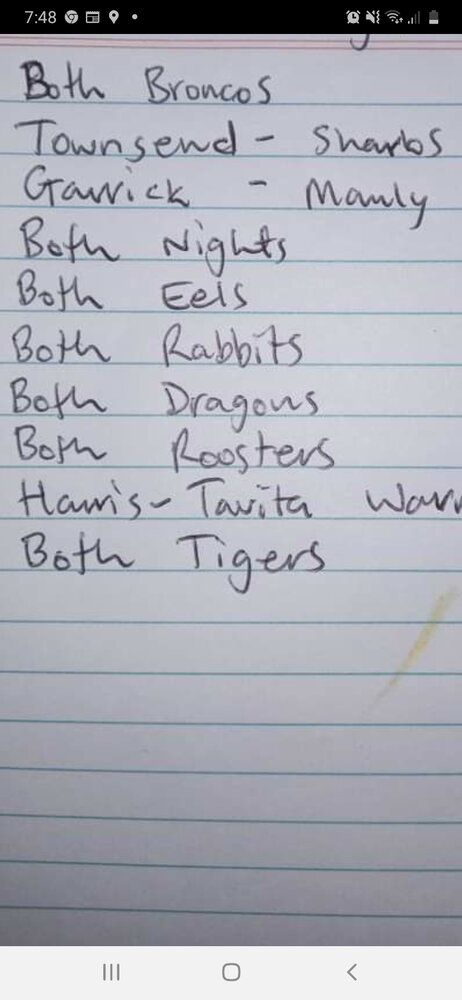 7:48
Both Broncos
Townsend - Sharbs
Garrick - Manly
Both Nights
Both Eels
Both Rabbits
Both Dragons
Both Roosters
Harris - Tavita Warr
Both Tigers